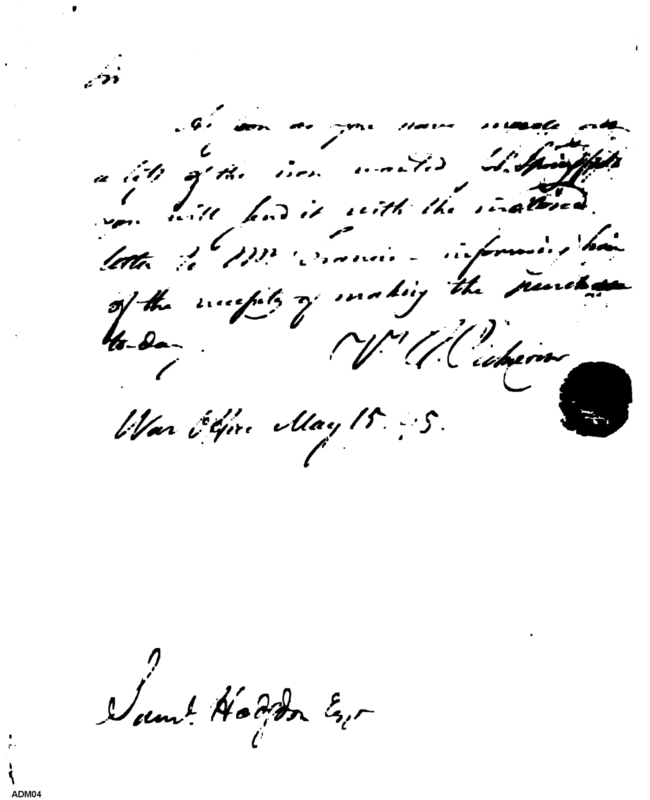 Sir
As soon as you have made out
a list of the iron wanted
you will send it with the inclosed
letter to Mr Francis - informing him
of the necessity of making the purchase
to-day.
Pickering
War Office May 15. 5.
Saml. Hodgdon Esqr
ADM04